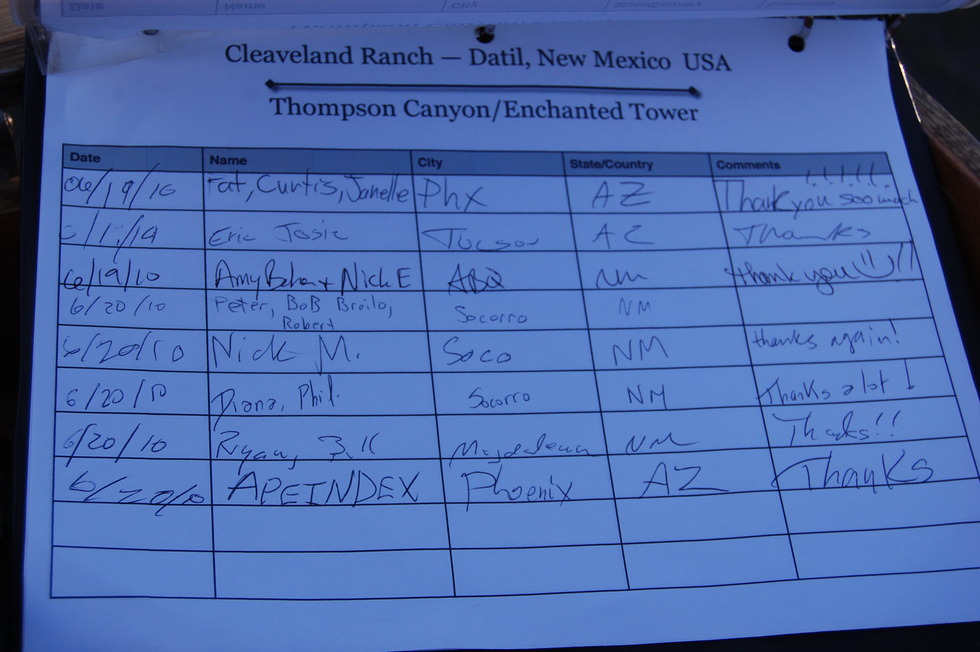 Cleaveland Ranch — Datil, New Mexico USA
Thompson Canyon/Enchanted Tower
Date Name City State/Country Comments
06/19/10 Fat, Curtis, Janelle Phx AZ Thank you soo much !!!!!!
Eric Tucson AZ Thanks
6/19/10 Amy + Nick E ABQ NM thank you !!
6/20/10 Peter, BoB Broilo, Socorro NM
Robert
6/20/10 Nick M. Soco NM thanks again!
6/20/10 Diana, Phil. Socorro NM Thanks a lot!
6/20/10 Ryan, Bill Magdalena NM Thanks!!
6/20/10 APEINDEX Phoenix AZ Thanks